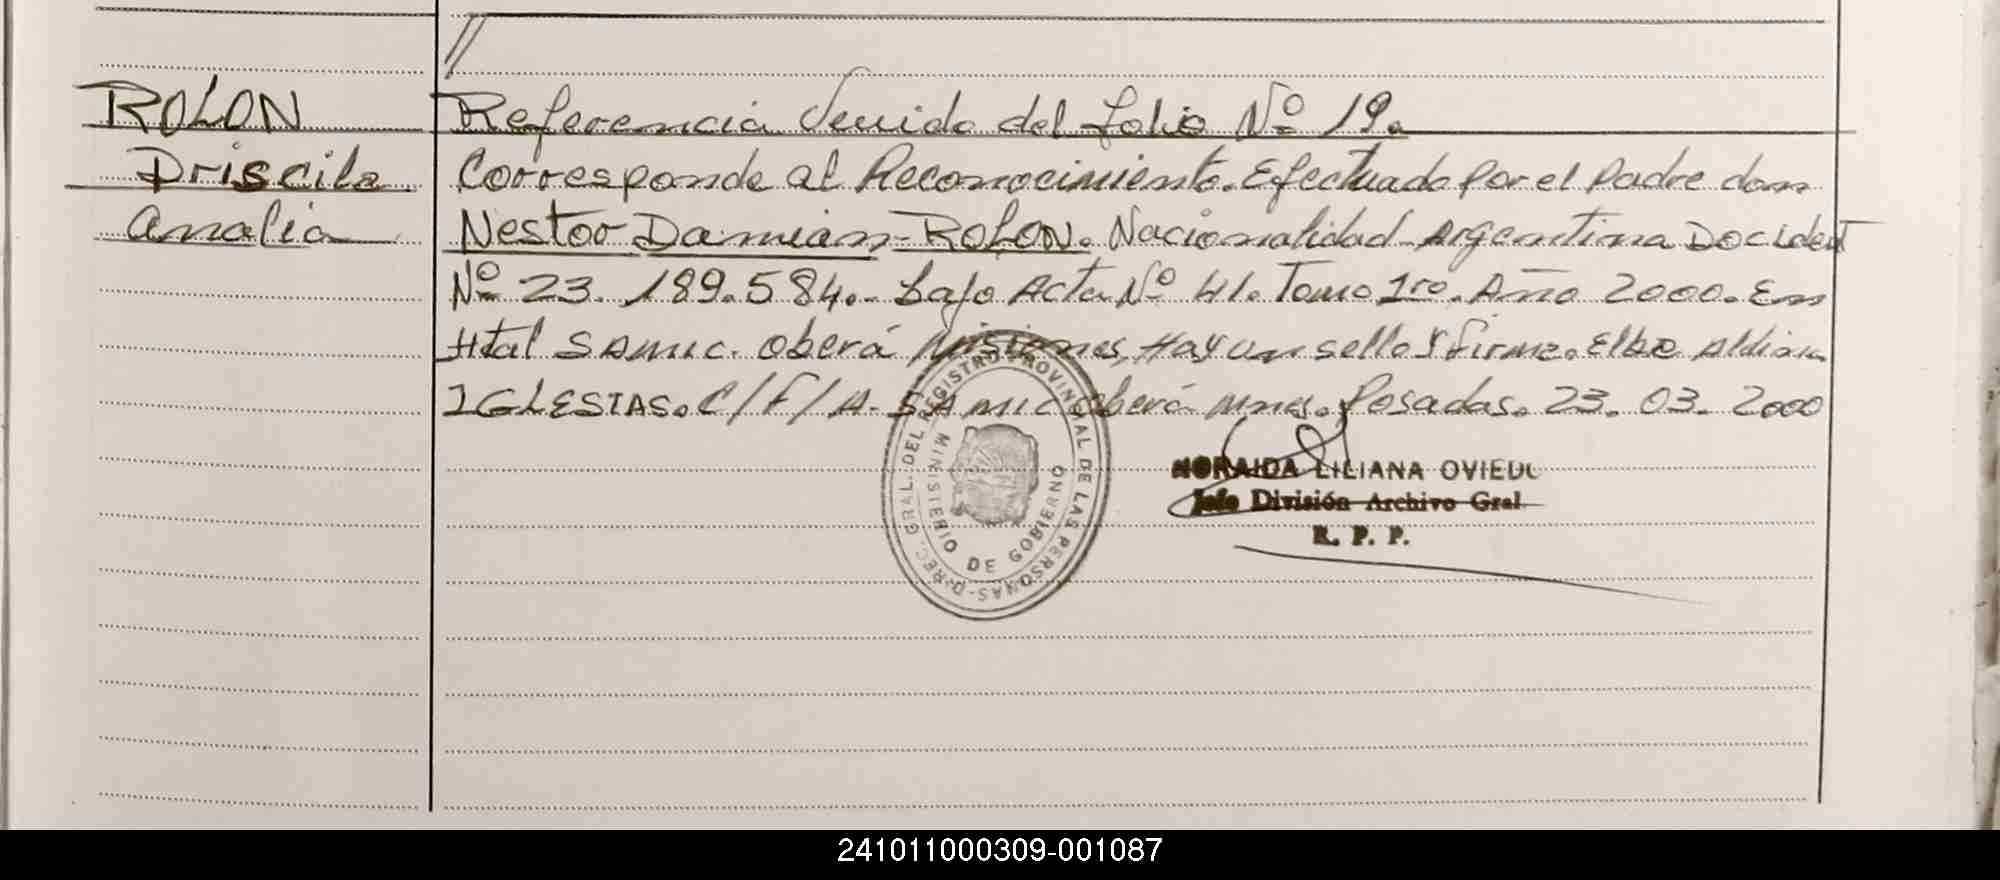 //
ROLON
Driscila
Analia
Referencia Venido del folio Nº 19.
Corresponde al Reconocimiento. Efectuado por el Padre don
Nestor Damian - ROLON. Nacionalidad - Argentina Doc Ident
Nº 23.189.584.- bajo Acta Nº 41. Tomo 1ro. Año 2000. En
Htal SAMIC. oberá Misiones, Hay un sello y firma. Elba
IGLESIAS. C/F/A. SAMIC oberá Mnes. Posadas. 23.03.2000
DIREC. GRAL. DEL REGISTRO PROVINCIAL DE LAS PERSONAS
MINISTERIO DE GOBIERNO
NORAIDA LILIANA OVIEDO
Jefe División Archivo Gral
R. P. P.
241011000309-001087